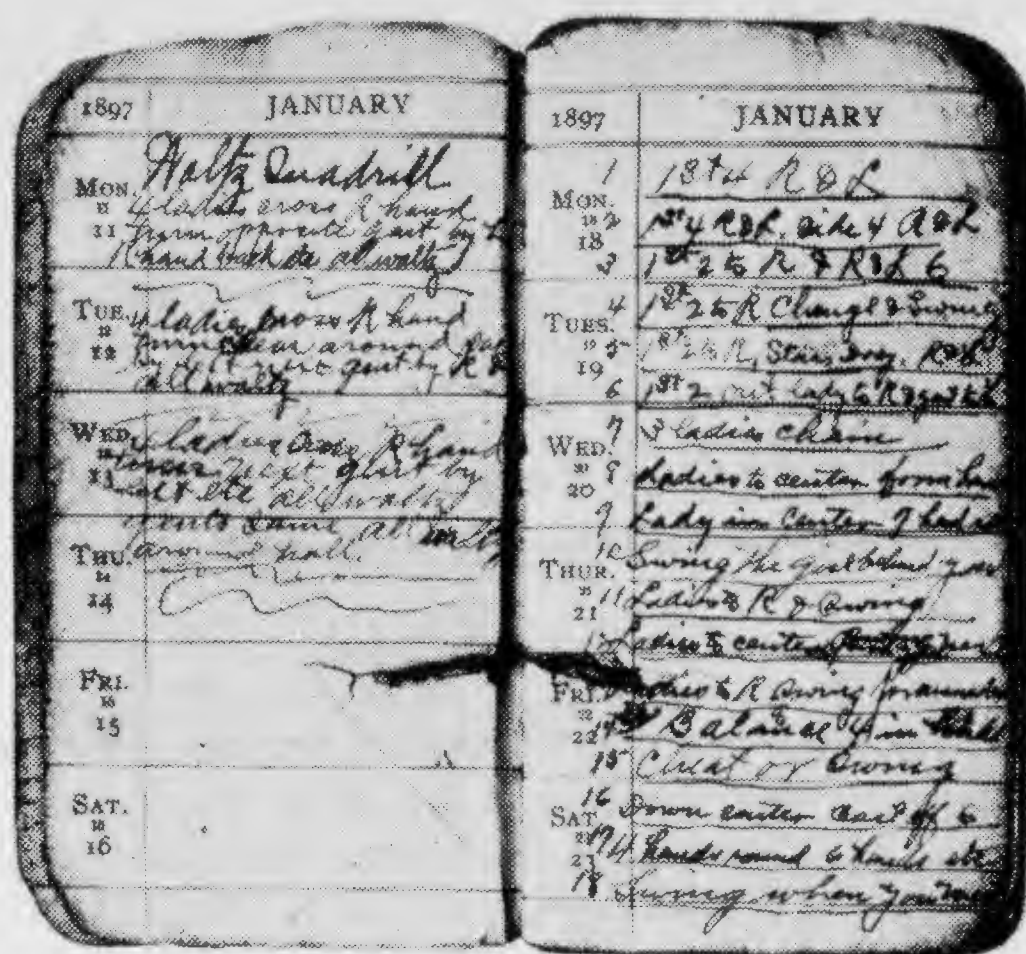 1897 JANUARY
Waltz Quadrill
MON.
11
11
4 ladies cross R hand
turn opposite gent by L
R hand back etc all waltz
TUE.
12
12
4 ladies cross R hand
turn clear around
next gent by
all waltz
WED.
13
13
ladies cross R hand
next gent by
left etc all waltz
gents same all waltz
THU.
14
14
around hall.
FRI.
15
15
SAT.
16
16
1897 JANUARY
1 1st 4 R & L
MON.
18
18
2 1st 4 R & L. side 4 R & L
3 1st 2 to R & R & L 6
TUES.
19
19
4 1st 2 to R Change & Swing
5 1st 2 to R, Star R & L
6 1st 2 out lady to R & gent to
WED.
20
20
7 3 ladies chain
8 Ladies to center form
9 Lady in center 7 hands
THUR.
21
21
10 Swing the girl behind you
11 Ladies to R & Swing
12 Ladies to center
FRI.
22
22
Ladies to R Swing
14 Balance 4 in
15 Cheat or Swing
SAT.
23
23
16 Down center cast off 6
17 4 hands round 6 hands etc
18 Swing when you